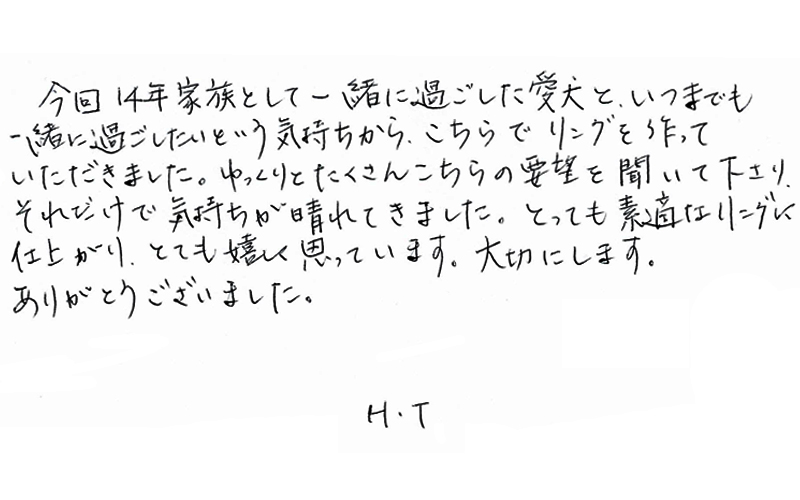 今回14年家族として一緒に過ごした愛犬と、いつまでも
一緒に過ごしたいという気持ちから、こちらでリングを作って
いただきました。ゆっくりとたくさんこちらの要望を聞いて下さり、
それだけで気持ちが晴れてきました。とっても素適なリングに
仕上がり、とても嬉しく思っています。大切にします。
ありがとうございました。
H・T